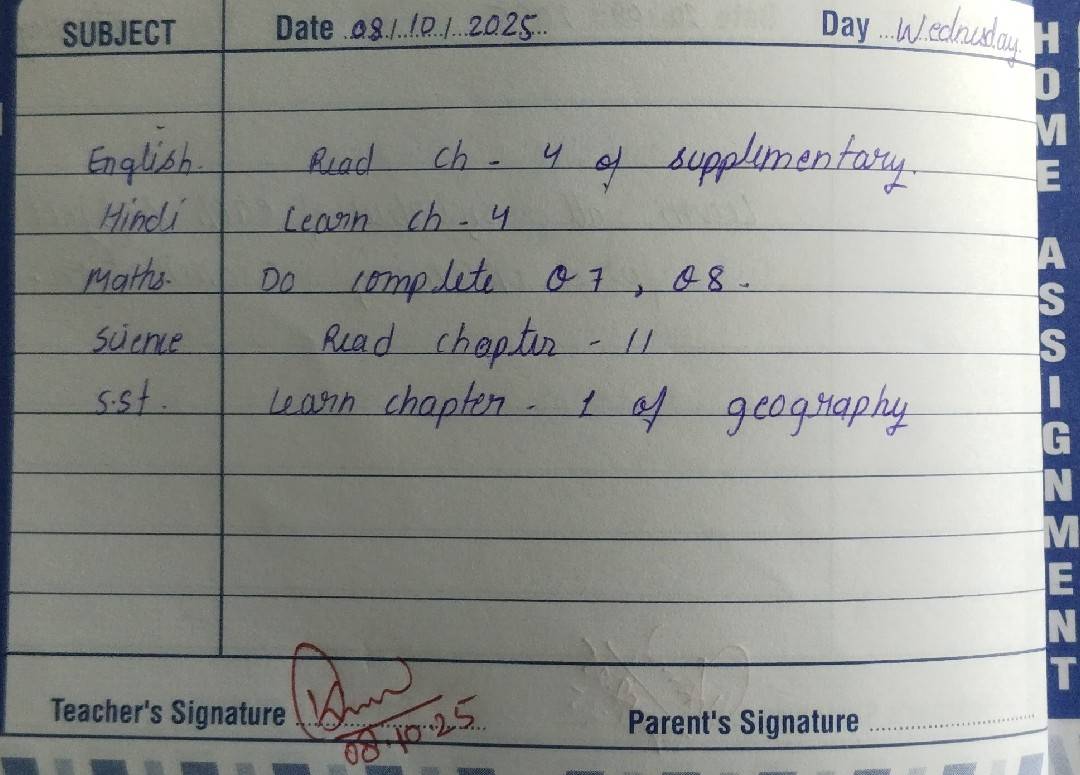 SUBJECT Date 08/10/2025 Day Wednesday
English. Read ch - 4 of supplementary.
Hindi Learn ch - 4
Maths. Do complete Q7, Q8.
Science Read chapter - 11
S.St. Learn chapter - 1 of geography
Teacher's Signature 08.10.25 Parent's Signature
HOME ASSIGNMENT